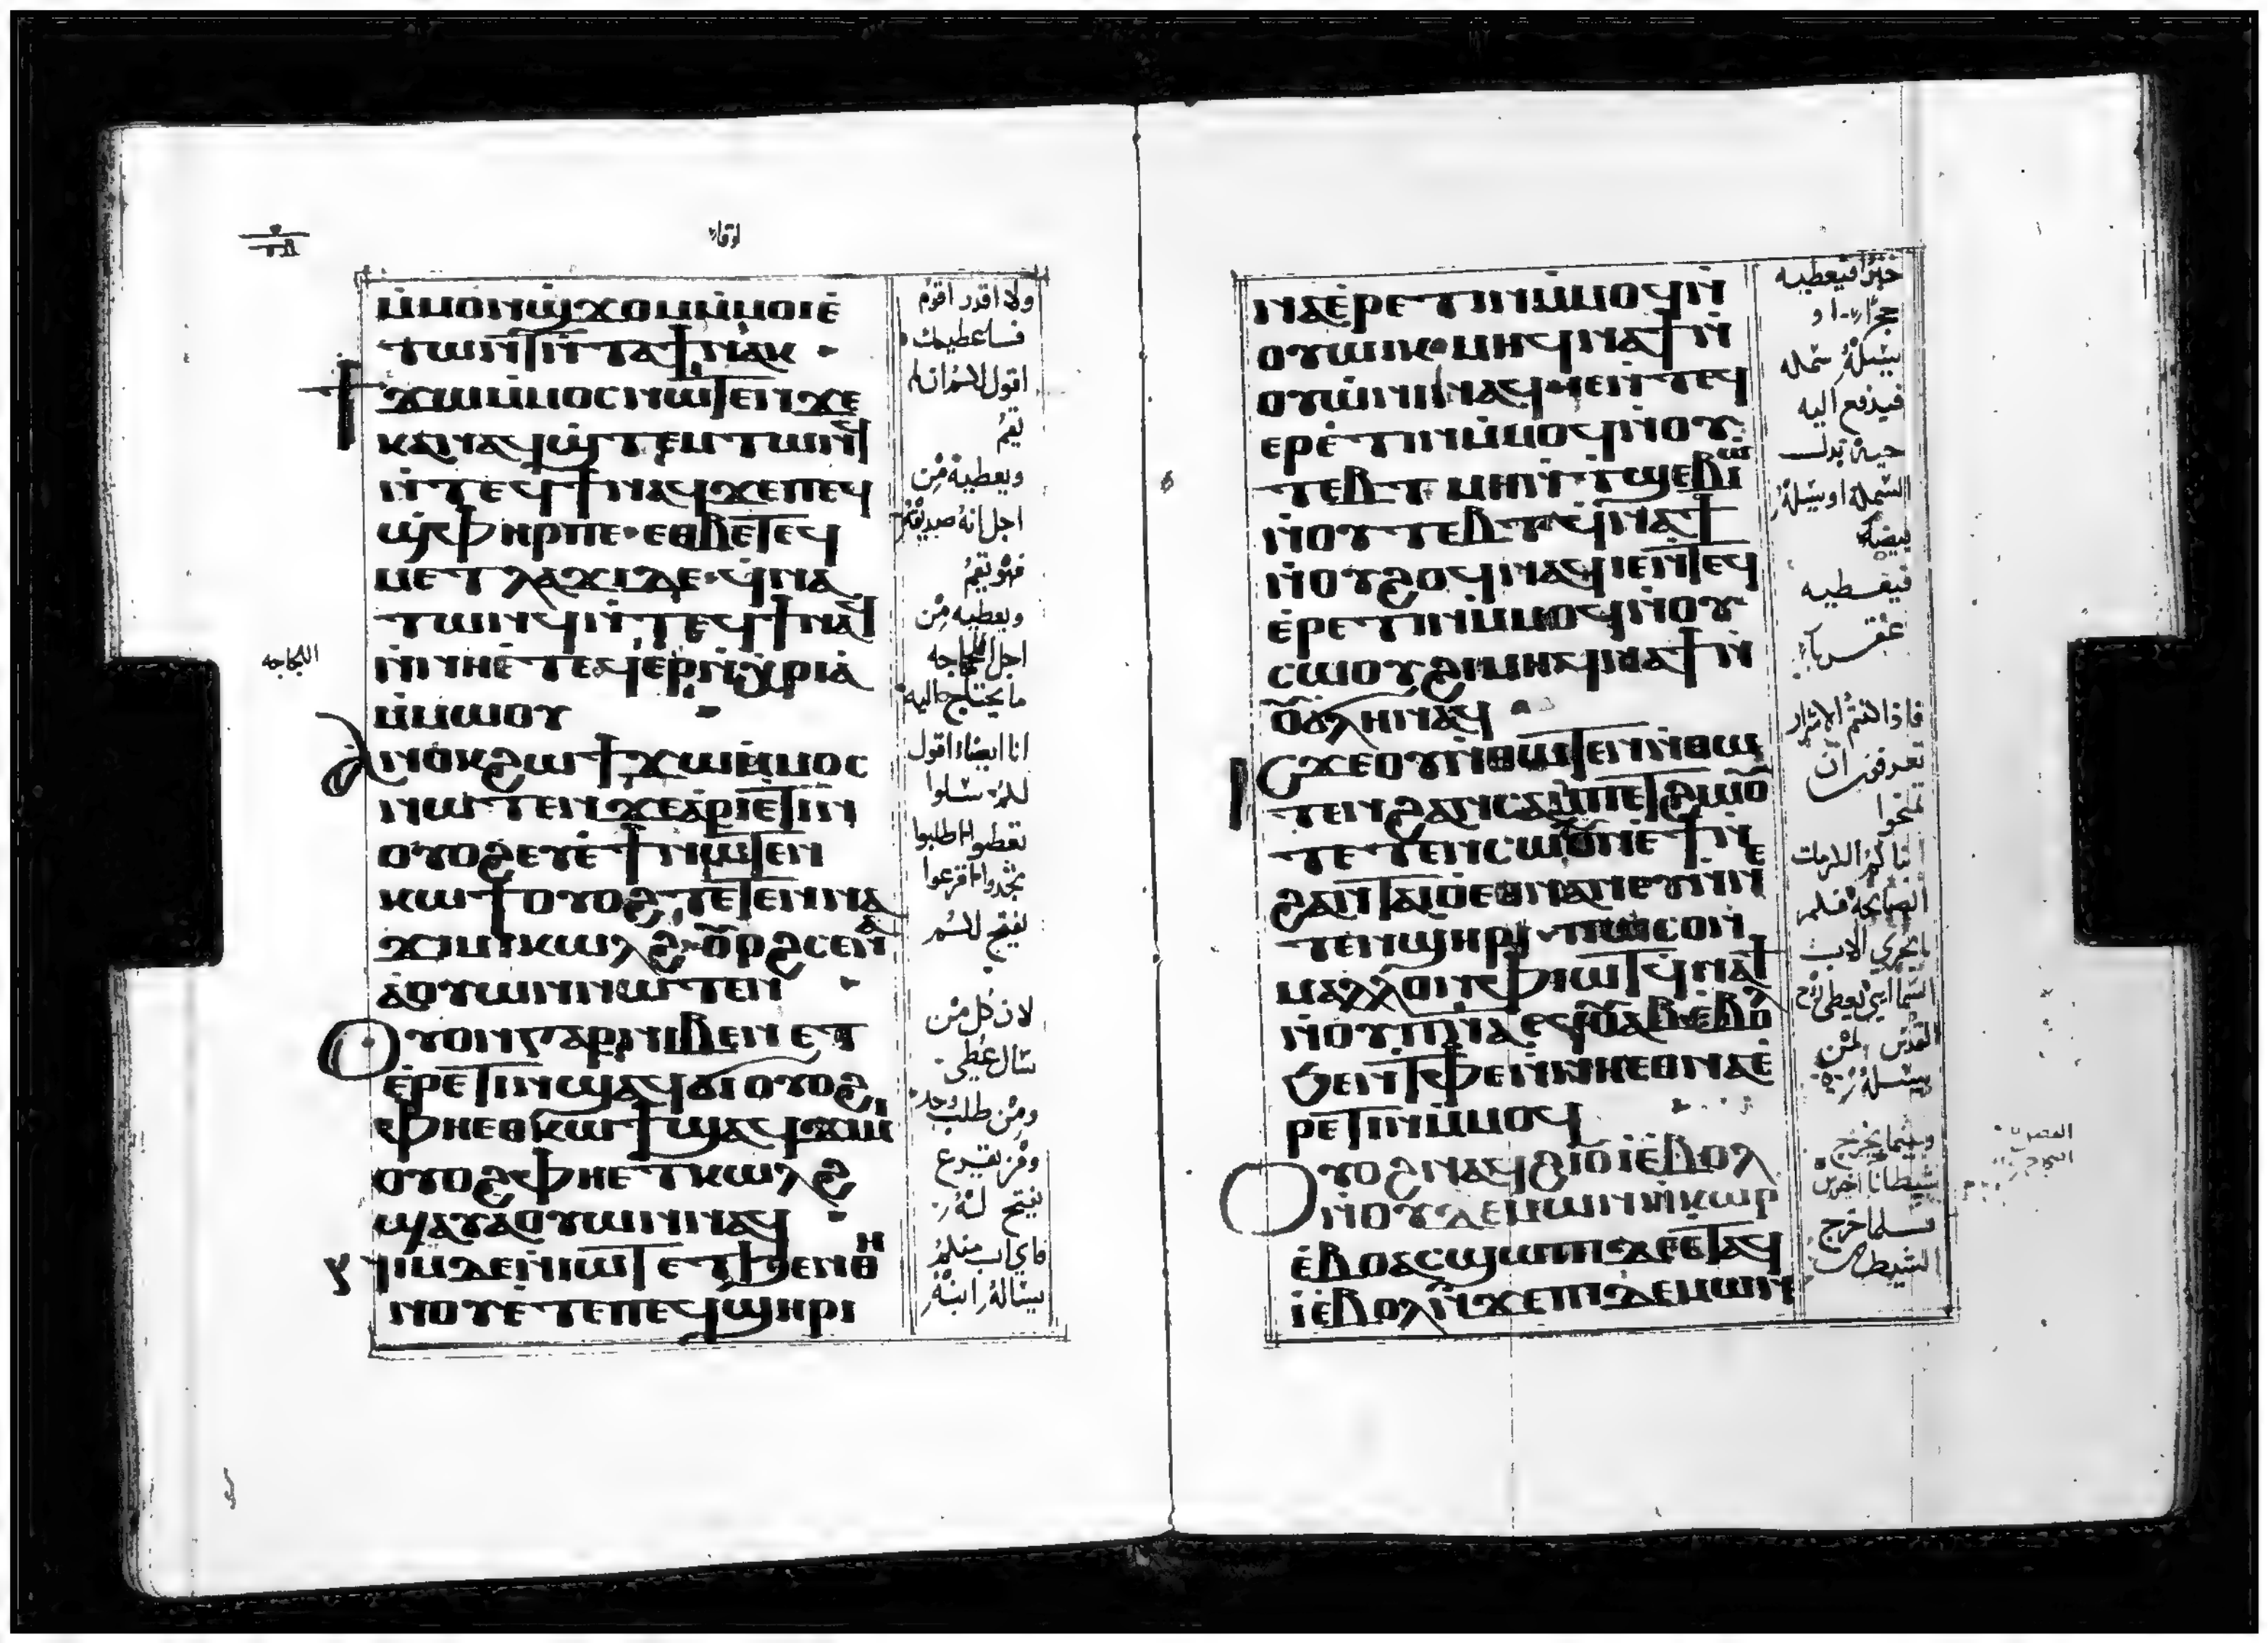 لوقا
ⲙ̀ⲙⲟⲛϣϫⲟⲙⲙ̀ⲙⲟⲓⲉ̀
ⲧⲱⲛⲧⲛ̀ⲧⲁϯⲛⲁⲕ
ϯϫⲱⲙ̀ⲙⲟⲥⲛⲱⲧⲉⲛϫⲉ
ⲕⲁⲛⲁϥϣ̀ⲧⲉⲙⲧⲱⲛϥ
ⲛ̀ⲧⲉϥϯⲛⲁϥϫⲉⲡⲉϥ
ϣ̀ⲫⲏⲣⲡⲉ·ⲉⲑⲃⲉⲧⲉϥ
ⲙⲉⲧⲗⲁϫⲓⲇⲉ·ϥ̀ⲛⲁ
ⲧⲱⲛϥⲛ̀ⲧⲉϥϯⲛⲁϥ
ⲛ̀ⲛⲏⲉ̀ⲧⲉϥⲉⲣⲛ̀ⲭⲣⲓⲁ̀
ⲙ̀ⲙⲱⲟⲩ
ⲁ̀ⲛⲟⲕϩⲱϯϫⲱⲙ̀ⲙⲟⲥ
ⲛⲱⲧⲉⲛϫⲉⲁ̀ⲣⲓⲉ̀ⲧⲓⲛ
ⲟⲩⲟϩⲉⲩⲉ̀ϯⲛⲱⲧⲉⲛ
ⲕⲱϯⲟⲩⲟϩⲧⲉⲧⲉⲛⲛⲁ
ϫⲓⲙⲓⲕⲱⲗϩ·ⲟⲩⲟϩⲥⲉⲛⲁ
ⲁ̀ⲟⲩⲱⲛⲛⲱⲧⲉⲛ
ⲟⲩⲟⲛⲅⲁⲣⲛⲓⲃⲉⲛⲉⲧ
ⲉ̀ⲣⲉ̀ⲧⲓⲛϣⲁϥϭⲓⲟⲩⲟϩ
ⲫⲏⲉⲑⲕⲱϯϣⲁϥϫⲓⲙⲓ
ⲟⲩⲟϩⲫⲏⲉⲧⲕⲱⲗϩ
ϣⲁⲩⲁ̀ⲟⲩⲱⲛⲛⲁϥ
ⲛⲓⲙⲇⲉⲛ̀ⲓⲱⲧⲉⲧϧⲉⲛⲑⲏ
ⲛⲟⲩⲉ̀ⲧⲉⲡⲉϥϣⲏⲣⲓ
ولا اقدر اقوم
فساعطيك
اقول لكم ان لم
يقم
ويعطيه من
اجل انه صديقه
فهو يقم
ويعطيه من
اجل اللجاجه
ما يحتاج اليه
انا ايضا اقول
لكم سلوا
تعطوا اطلبوا
تجدوا اقرعوا
يفتح لكم
لان كل من
سال عطي
ومن طلب وجد
ومن يقرع
يفتح له
فاي اب منكم
يساله ابنه
اللجاجه
ⲛⲁⲉ̀ⲣⲉⲧⲓⲛⲙ̀ⲙⲟϥⲛ̀
ⲟⲩⲱⲓⲕ·ⲙⲏϥⲛⲁϯⲛ̀
ⲟⲩⲱ̀ⲛⲓⲛⲁϥ·ⲓⲉⲛ̀ⲧⲉϥ
ⲉⲣⲉ̀ⲧⲓⲛⲙ̀ⲙⲟϥⲛ̀ⲟⲩ
ⲧⲉⲃⲧⲙⲏⲛ̀ⲧϣⲉⲃⲓⲱ̀
ⲛ̀ⲟⲩⲧⲉⲃⲧϥ̀ⲛⲁϯ
ⲛ̀ⲟⲩϩⲟϥⲛⲁϥⲓⲉⲛ̀ⲧⲉϥ
ⲉ̀ⲣⲉⲧⲓⲛⲙ̀ⲙⲟϥⲛ̀ⲟⲩ
ⲥⲱⲟⲩϩⲓⲙⲏϥⲛⲁϯⲛ̀
ⲟⲩϭⲗⲏⲛⲁϥ
ⲓⲥϫⲉⲟⲩⲛ̀ⲑⲱⲧⲉⲛⲛ̀ⲑⲱ
ⲧⲉⲛϩⲁⲛⲥⲁⲙⲡⲉⲧϩⲱⲟⲩ
ⲧⲉⲧⲉⲛⲥⲱⲟⲩⲛⲉ̀ϯⲛ̀
ϩⲁⲛⲧⲁⲓⲟⲉⲑⲛⲁⲛⲉⲩⲛⲛⲉ
ⲧⲉⲛϣⲏⲣⲓ·ⲡⲱⲥⲟⲛ
ⲙⲁⲗⲗⲟⲛⲫⲓⲱⲧϥⲛⲁϯ
ⲛ̀ⲟⲩⲡⲛⲁⲉϥⲟⲩⲁⲃⲉ̀ⲃⲟⲗ
ϧⲉⲛⲧⲫⲉⲛ̀ⲛⲏⲉⲑⲛⲁⲉ̀
ⲣⲉⲧⲓⲛⲙ̀ⲙⲟϥ
ⲟⲩⲟϩⲛⲁϥϩⲓⲟⲩⲓⲉ̀ⲃⲟⲗ
ⲛ̀ⲟⲩⲇⲉⲙⲱⲛⲛ̀ⲕⲱⲣ
ⲉ̀ⲃⲟⲁⲥϣⲱⲡⲓϫⲉⲉ̀ⲧⲁϥ
ⲓⲉ̀ⲃⲟⲗⲛ̀ϫⲉⲡⲓⲇⲉⲙⲱⲛ
خبزا فيعطيه
حجارا او
يسله سمكه
فيدفع اليه
حيه بدل
السمكه او يسله
بيضه
فيعطيه
عقربا
فاذا انتم الاشرار
تعرفون ان
تمنحوا
العطايا
الصالحه فكم
بالحري الاب
السمايي يعطي روح
القدس لمن
يسله
وبينما يخرج
شيطانا اخرس
فلما خرج
الشيطان